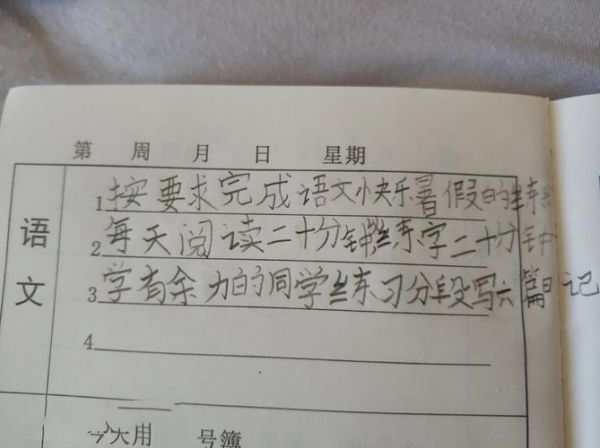 第 周 月 日 星期
语文
1 按要求完成语文快乐暑假的练
2 每天阅读二十分钟练字二十分钟
3 学有余力的同学练习分段写六篇日记
4
今天用 号簿